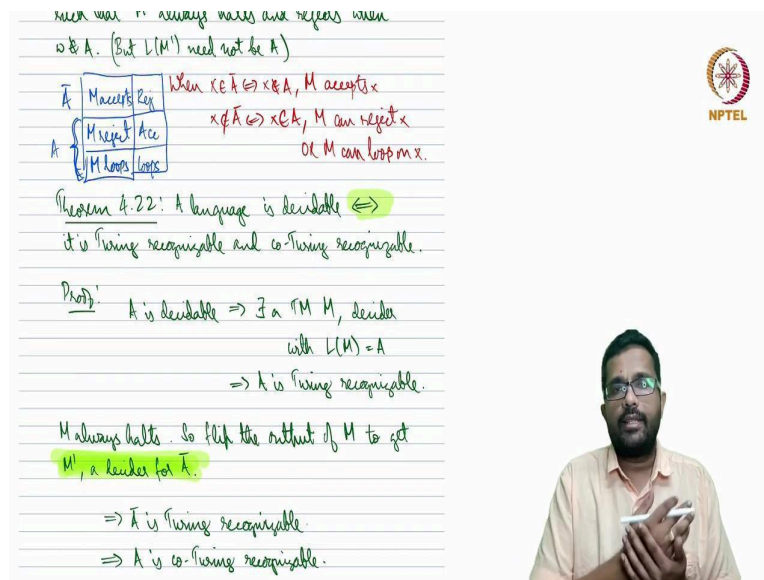 such that M' always halts and rejects when
w ∉ A. (But L(M') need not be A)
Ā M accepts Rej
A M reject Acc
M loops loops
When x ∈ Ā ⇔ x ∉ A, M accepts x
x ∉ Ā ⇔ x ∈ A, M can reject x
OR M can loop on x.
NPTEL
Theorem 4.22: A language is decidable ⇔
it is Turing recognizable and co-Turing recognizable.
Proof:
A is decidable ⇒ ∃ a TM M, decider
with L(M) = A
⇒ A is Turing recognizable.
M always halts. So flip the output of M to get
M', a decider for Ā.
⇒ Ā is Turing recognizable.
⇒ A is co-Turing recognizable.